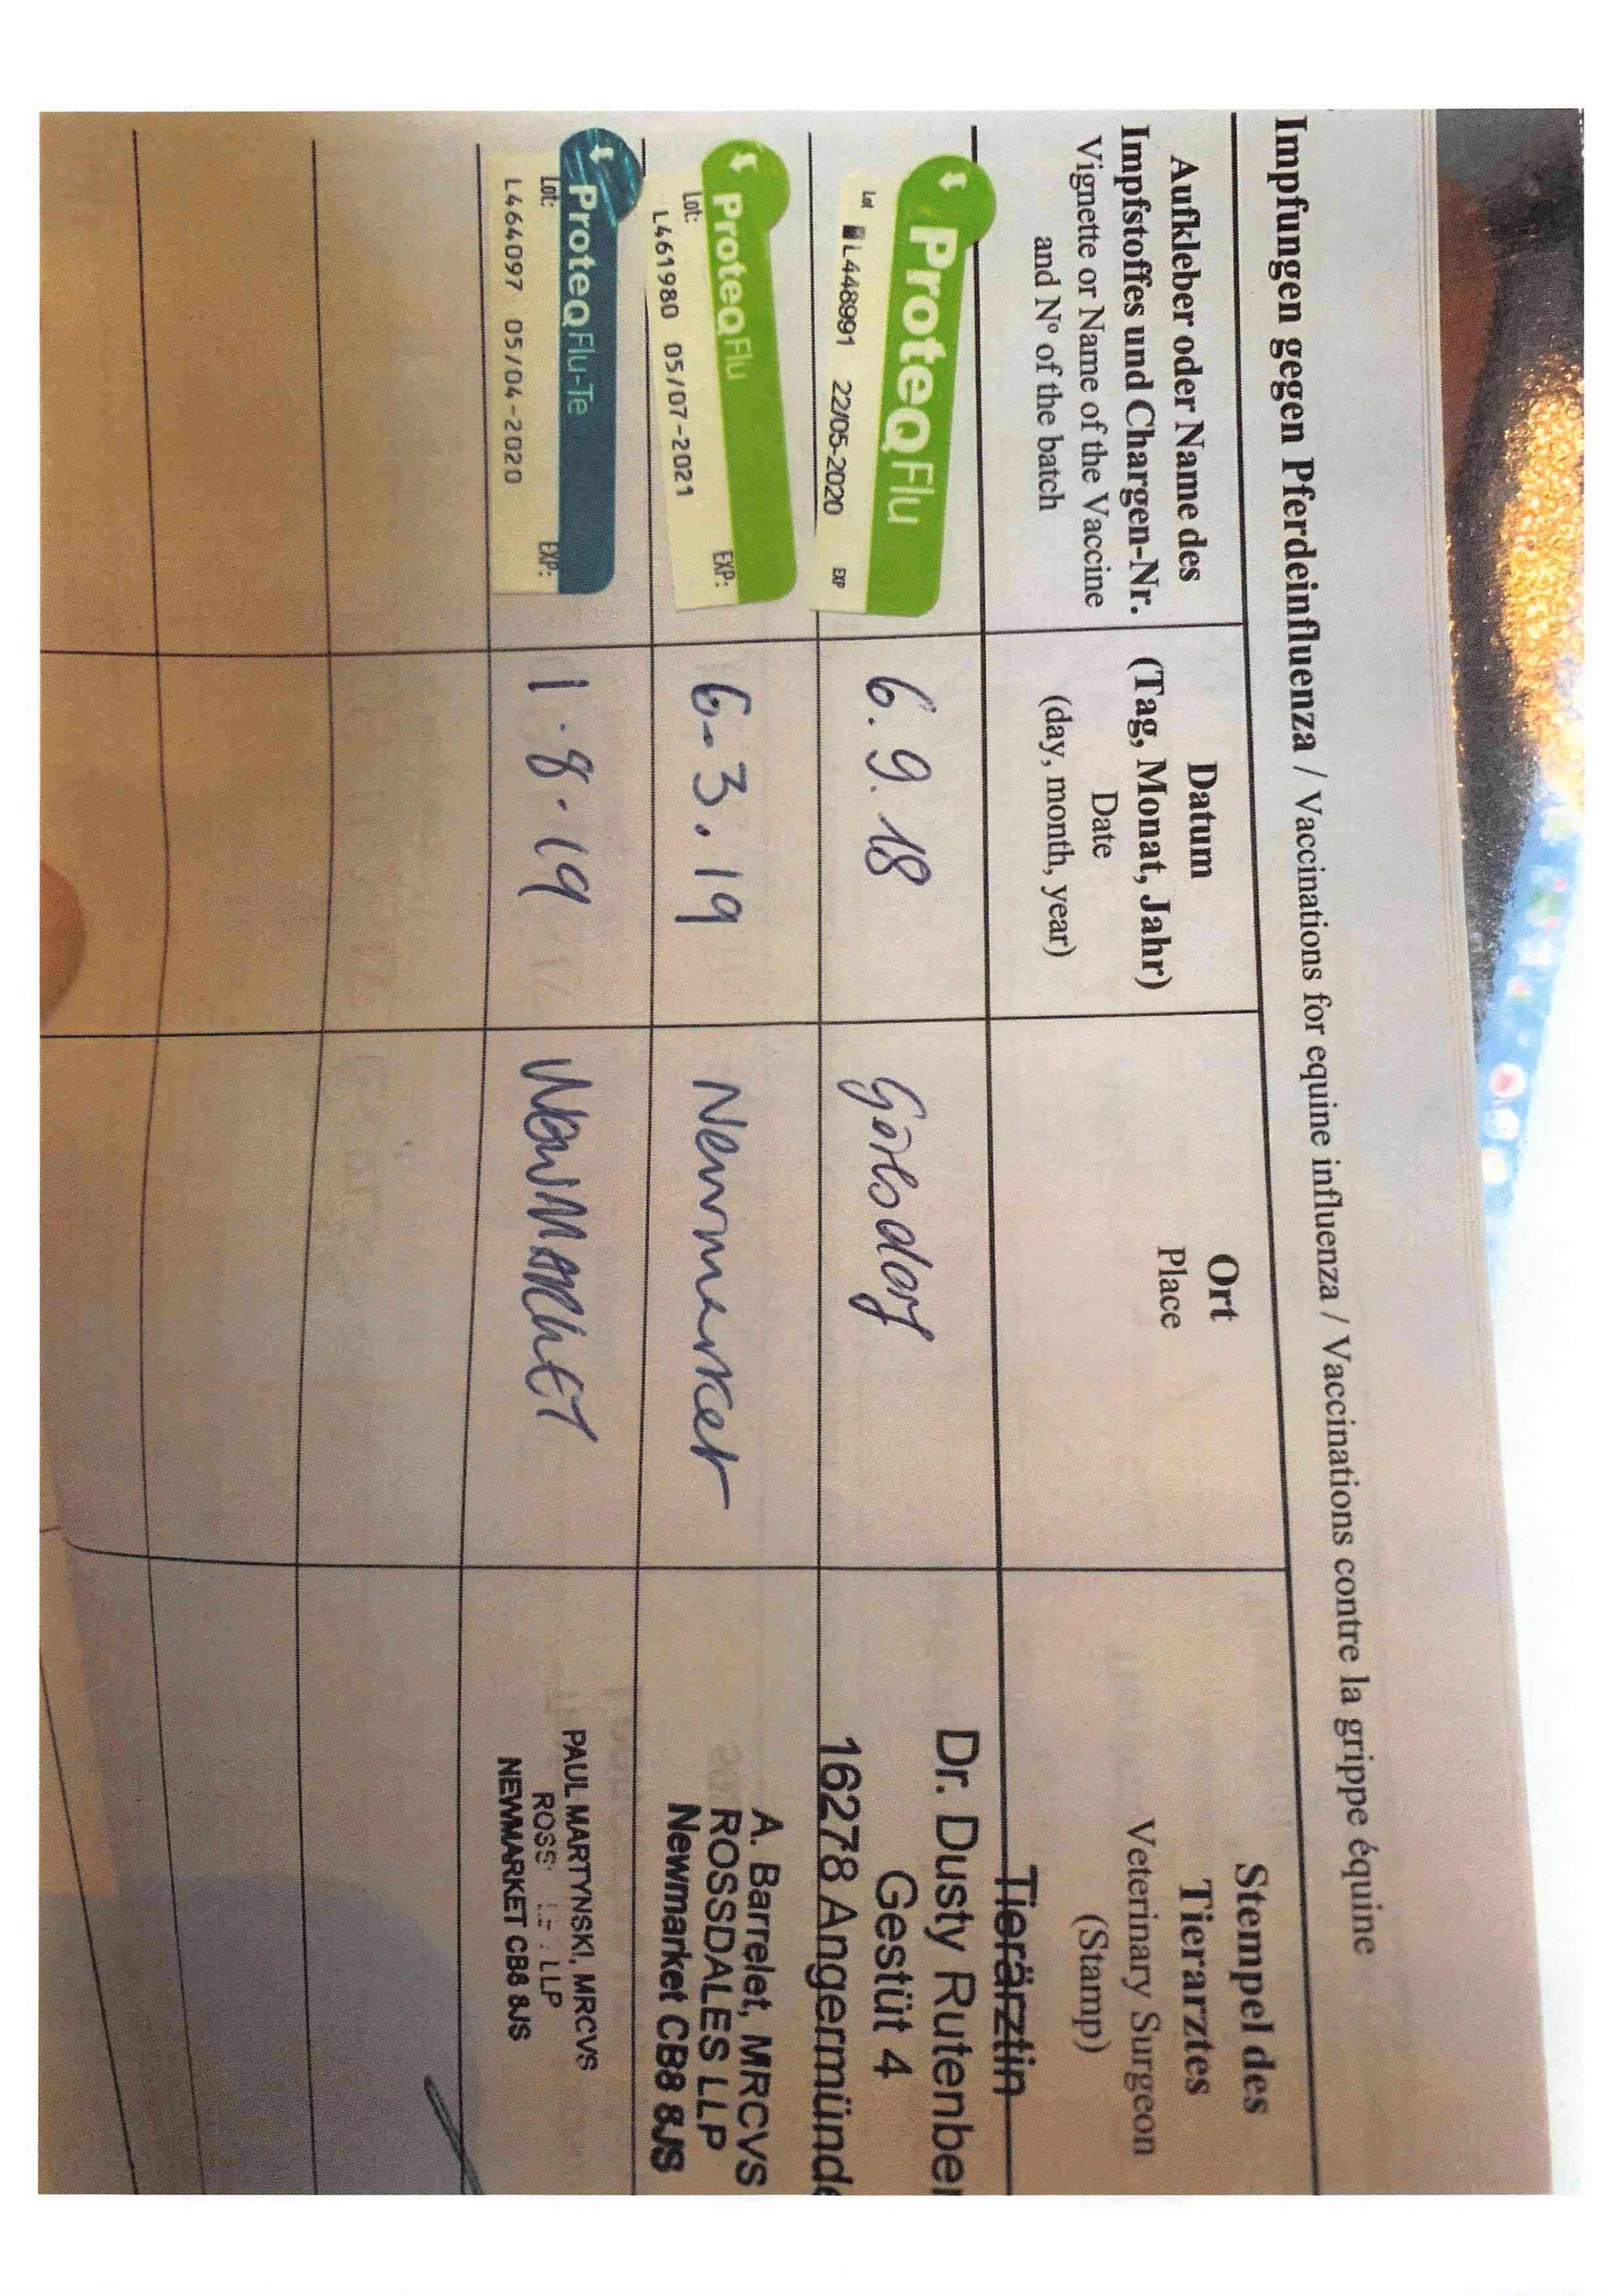 Impfungen gegen Pferdeinfluenza / Vaccinations for equine influenza / Vaccinations contre la grippe équine
Aufkleber oder Name des
Impfstoffes und Chargen-Nr.
Vignette or Name of the Vaccine
and N° of the batch
Datum
(Tag, Monat, Jahr)
Date
(day, month, year)
Ort
Place
Stempel des
Tierarztes
Veterinary Surgeon
(Stamp)
ProteqFlu
Lot L448991 22/05-2020 EXP
6.9.18
Görlsdorf
Tierärztin
Dr. Dusty Rutenber
Gestüt 4
16278 Angermünde
ProteqFlu
Lot: EXP:
L461980 05/07-2021
6.3.19
Newmarket
A. Barrelet, MRCVS
ROSSDALES LLP
Newmarket CB8 8JS
ProteqFlu-Te
Lot: EXP:
L464097 05/04-2020
1.8.19
NEWMARKET
PAUL MARTYNSKI, MRCVS
LLP
NEWMARKET CB8 8JS